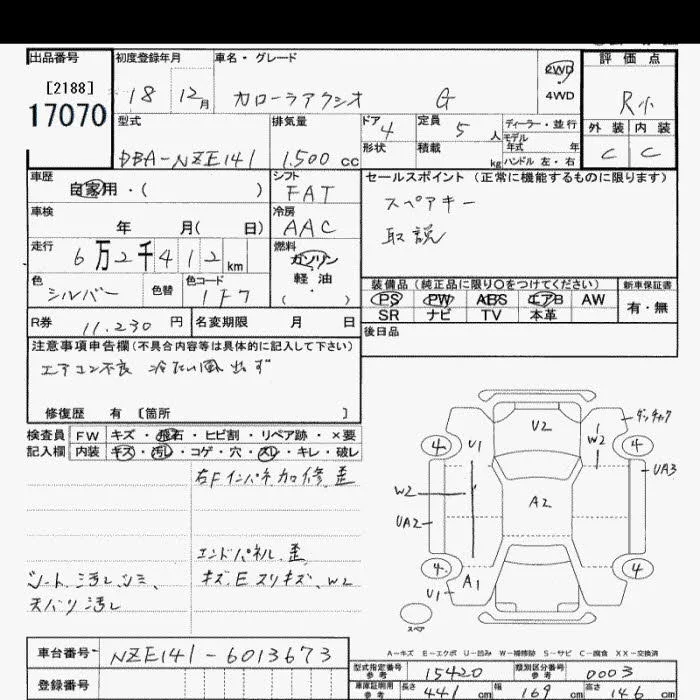 出品番号 初度登録年月 車名・グレード 2WD 4WD 評価点
[2188]
17070
18 12月 カローラアクシオ G R小
外装 内装
C C
型式 排気量 ドア 4 定員 5人 ディーラー・並行
モデル年式 年
DBA-NZE141 1.500 cc 形状 積載 kg ハンドル 左・右
車歴 自家用・( ) シフト FAT
セールスポイント (正常に機能するものに限ります)
スペアキー
取説
車検 年 月( 日) 冷房 AAC
走行 6万2千412km 燃料 ガソリン 軽油 ( ・ )
色 シルバー 色替 色コード 1F7
装備品 (純正品に限り○をつけてください) 新車保証書
PS PW ABS エアB AW 有・無
SR ナビ TV 本革
R券 11.230 円 名変期限 月 日
後日品
注意事項申告欄(不具合内容等は具体的に記入して下さい)
エアコン不良 冷たい風出ず
修復歴 有 [箇所 ]
検査員 FW キズ・飛石・ヒビ割・リペア跡・×要
記入欄 内装 キズ・汚レ・コゲ・穴・スレ・キレ・破レ
右Fインパネ加修、歪
エンドパネル、歪
キズ、Eスリキズ、W2
シート、汚レ、シミ、
天バリ汚レ
U2
W2
4
U1
4
UA3
W2
A2
UA2
4
A1
4
U1
スペア
A-キズ E-エクボ U-凹み W-補修跡 S-サビ C-腐食 XX-交換済
車台番号 NZE141-6013673
登録番号
型式指定番号 参考 15420 類別区分番号 参考 0003
車庫証明用 参考 長さ 441 cm 幅 169 cm 高さ 146 cm